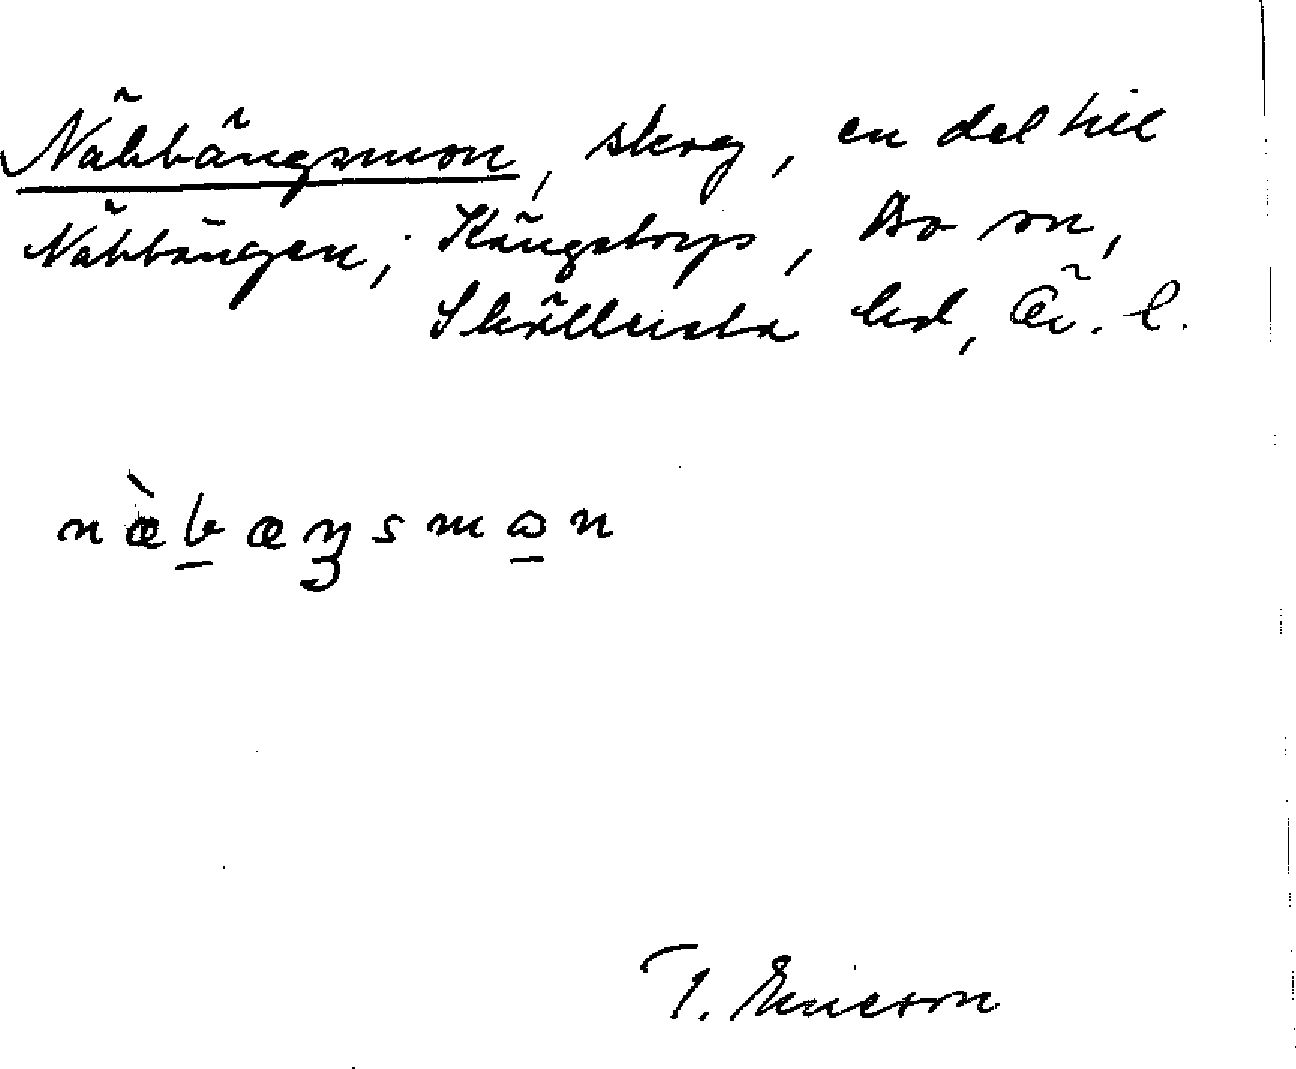 Näbbängsmon, skog, en del till
Näbbängen; Kängstorp, Bo sn,
Skällvista hd, Ö. l.
næbæŋsmɷn
T. Ericson